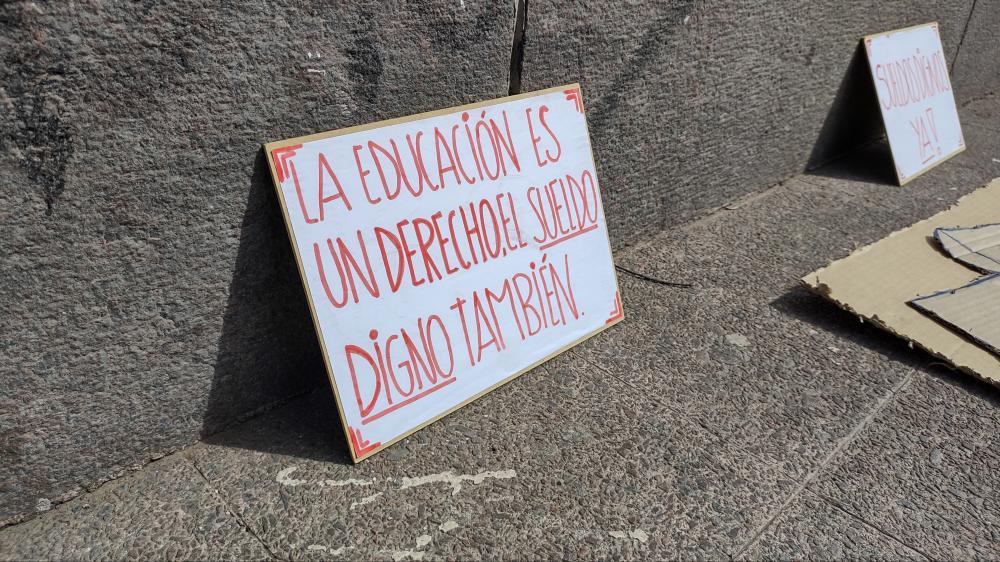 LA EDUCACIÓN ES
UN DERECHO, EL SUELDO
DIGNO TAMBIÉN.
SUELDOS DIGNOS
YA!